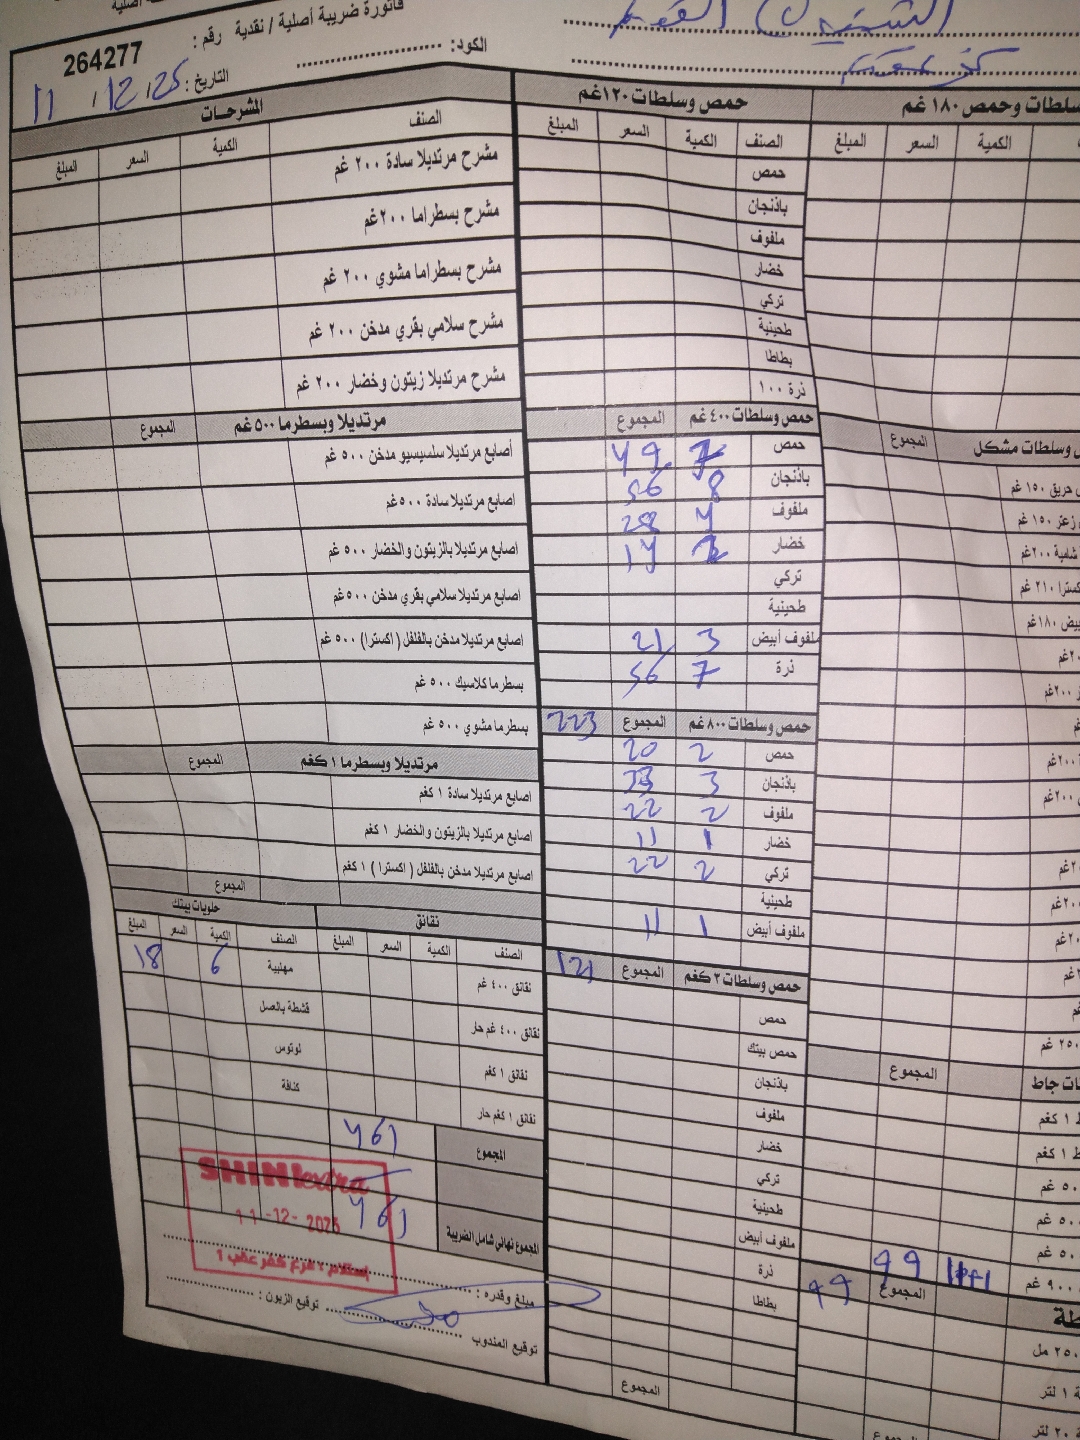 فاتورة ضريبة أصلية / نقدية رقم :
264277
الكود:
التاريخ: 11 / 12 / 25
المشرحات
الصنف الكمية السعر المبلغ
مشرح مرتديلا سادة ٢٠٠ غم
مشرح بسطراما ٢٠٠غم
مشرح بسطراما مشوي ٢٠٠ غم
مشرح سلامي بقري مدخن ٢٠٠ غم
مشرح مرتديلا زيتون وخضار ٢٠٠ غم
مرتديلا وبسطرما ٥٠٠ غم المجموع
أصابع مرتديلا سلسيسيو مدخن ٥٠٠ غم
اصابع مرتديلا سادة ٥٠٠غم
اصابع مرتديلا بالزيتون والخضار ٥٠٠ غم
اصابع مرتديلا سلامي بقري مدخن ٥٠٠غم
اصابع مرتديلا مدخن بالفلفل ( اكسترا ) ٥٠٠ غم
بسطرما كلاسيك ٥٠٠ غم
بسطرما مشوي ٥٠٠ غم
مرتديلا وبسطرما ١ كغم المجموع
اصابع مرتديلا سادة ١ كغم
اصابع مرتديلا بالزيتون والخضار ١ كغم
اصابع مرتديلا مدخن بالفلفل ( اكسترا ) ١ كغم
المجموع
نقانق
الصنف الكمية السعر المبلغ
نقانق ٤٠٠ غم
نقانق ٤٠٠ غم حار
نقانق ١ كغم
نقانق ١ كغم حار
حلويات بيتك
الصنف الكمية السعر المبلغ
مهلبية 6 18
قشطة بالعسل
لوتوس
كنافة
المجموع 461
المجموع نهائي شامل الضريبة 461
SHINI extra
11-12-2025
إستلام : فرع كفر عقب 1
مبلغ وقدره :
توقيع الزبون :
توقيع المندوب
حمص وسلطات ١٢٠غم
الصنف الكمية السعر المبلغ
حمص
باذنجان
ملفوف
خضار
تركي
طحينية
بطاطا
ذرة ١٠٠
حمص وسلطات ٤٠٠ غم المجموع
حمص 7 49
باذنجان 8 56
ملفوف 4 28
خضار 2 14
تركي
طحينية
ملفوف أبيض 3 21
ذرة 7 56
حمص وسلطات ٨٠٠ غم المجموع 223
حمص 2 20
باذنجان 3 33
ملفوف 2 22
خضار 1 11
تركي 2 22
طحينية
ملفوف أبيض 1 11
حمص وسلطات ٣ كغم المجموع 121
حمص
حمص بيتك
باذنجان
ملفوف
خضار
تركي
طحينية
ملفوف أبيض
ذرة
بطاطا
المجموع
سلطات وحمص ١٨٠ غم
الكمية السعر المبلغ
وسلطات مشكل المجموع
حريق ١٥٠ غم
زعتر ١٥٠ غم
شامية ٢٠٠غم
كسترا ٢١٠ غم
بيض ١٨٠غم
٢٠٠غم
٢٠٠غم
٢٥٠ غم
المجموع
١ كغم
١ كغم
٩٠٠ غم
99
المجموع 99
٢٥٠ مل
١ لتر
٢٠ لتر
المجموع